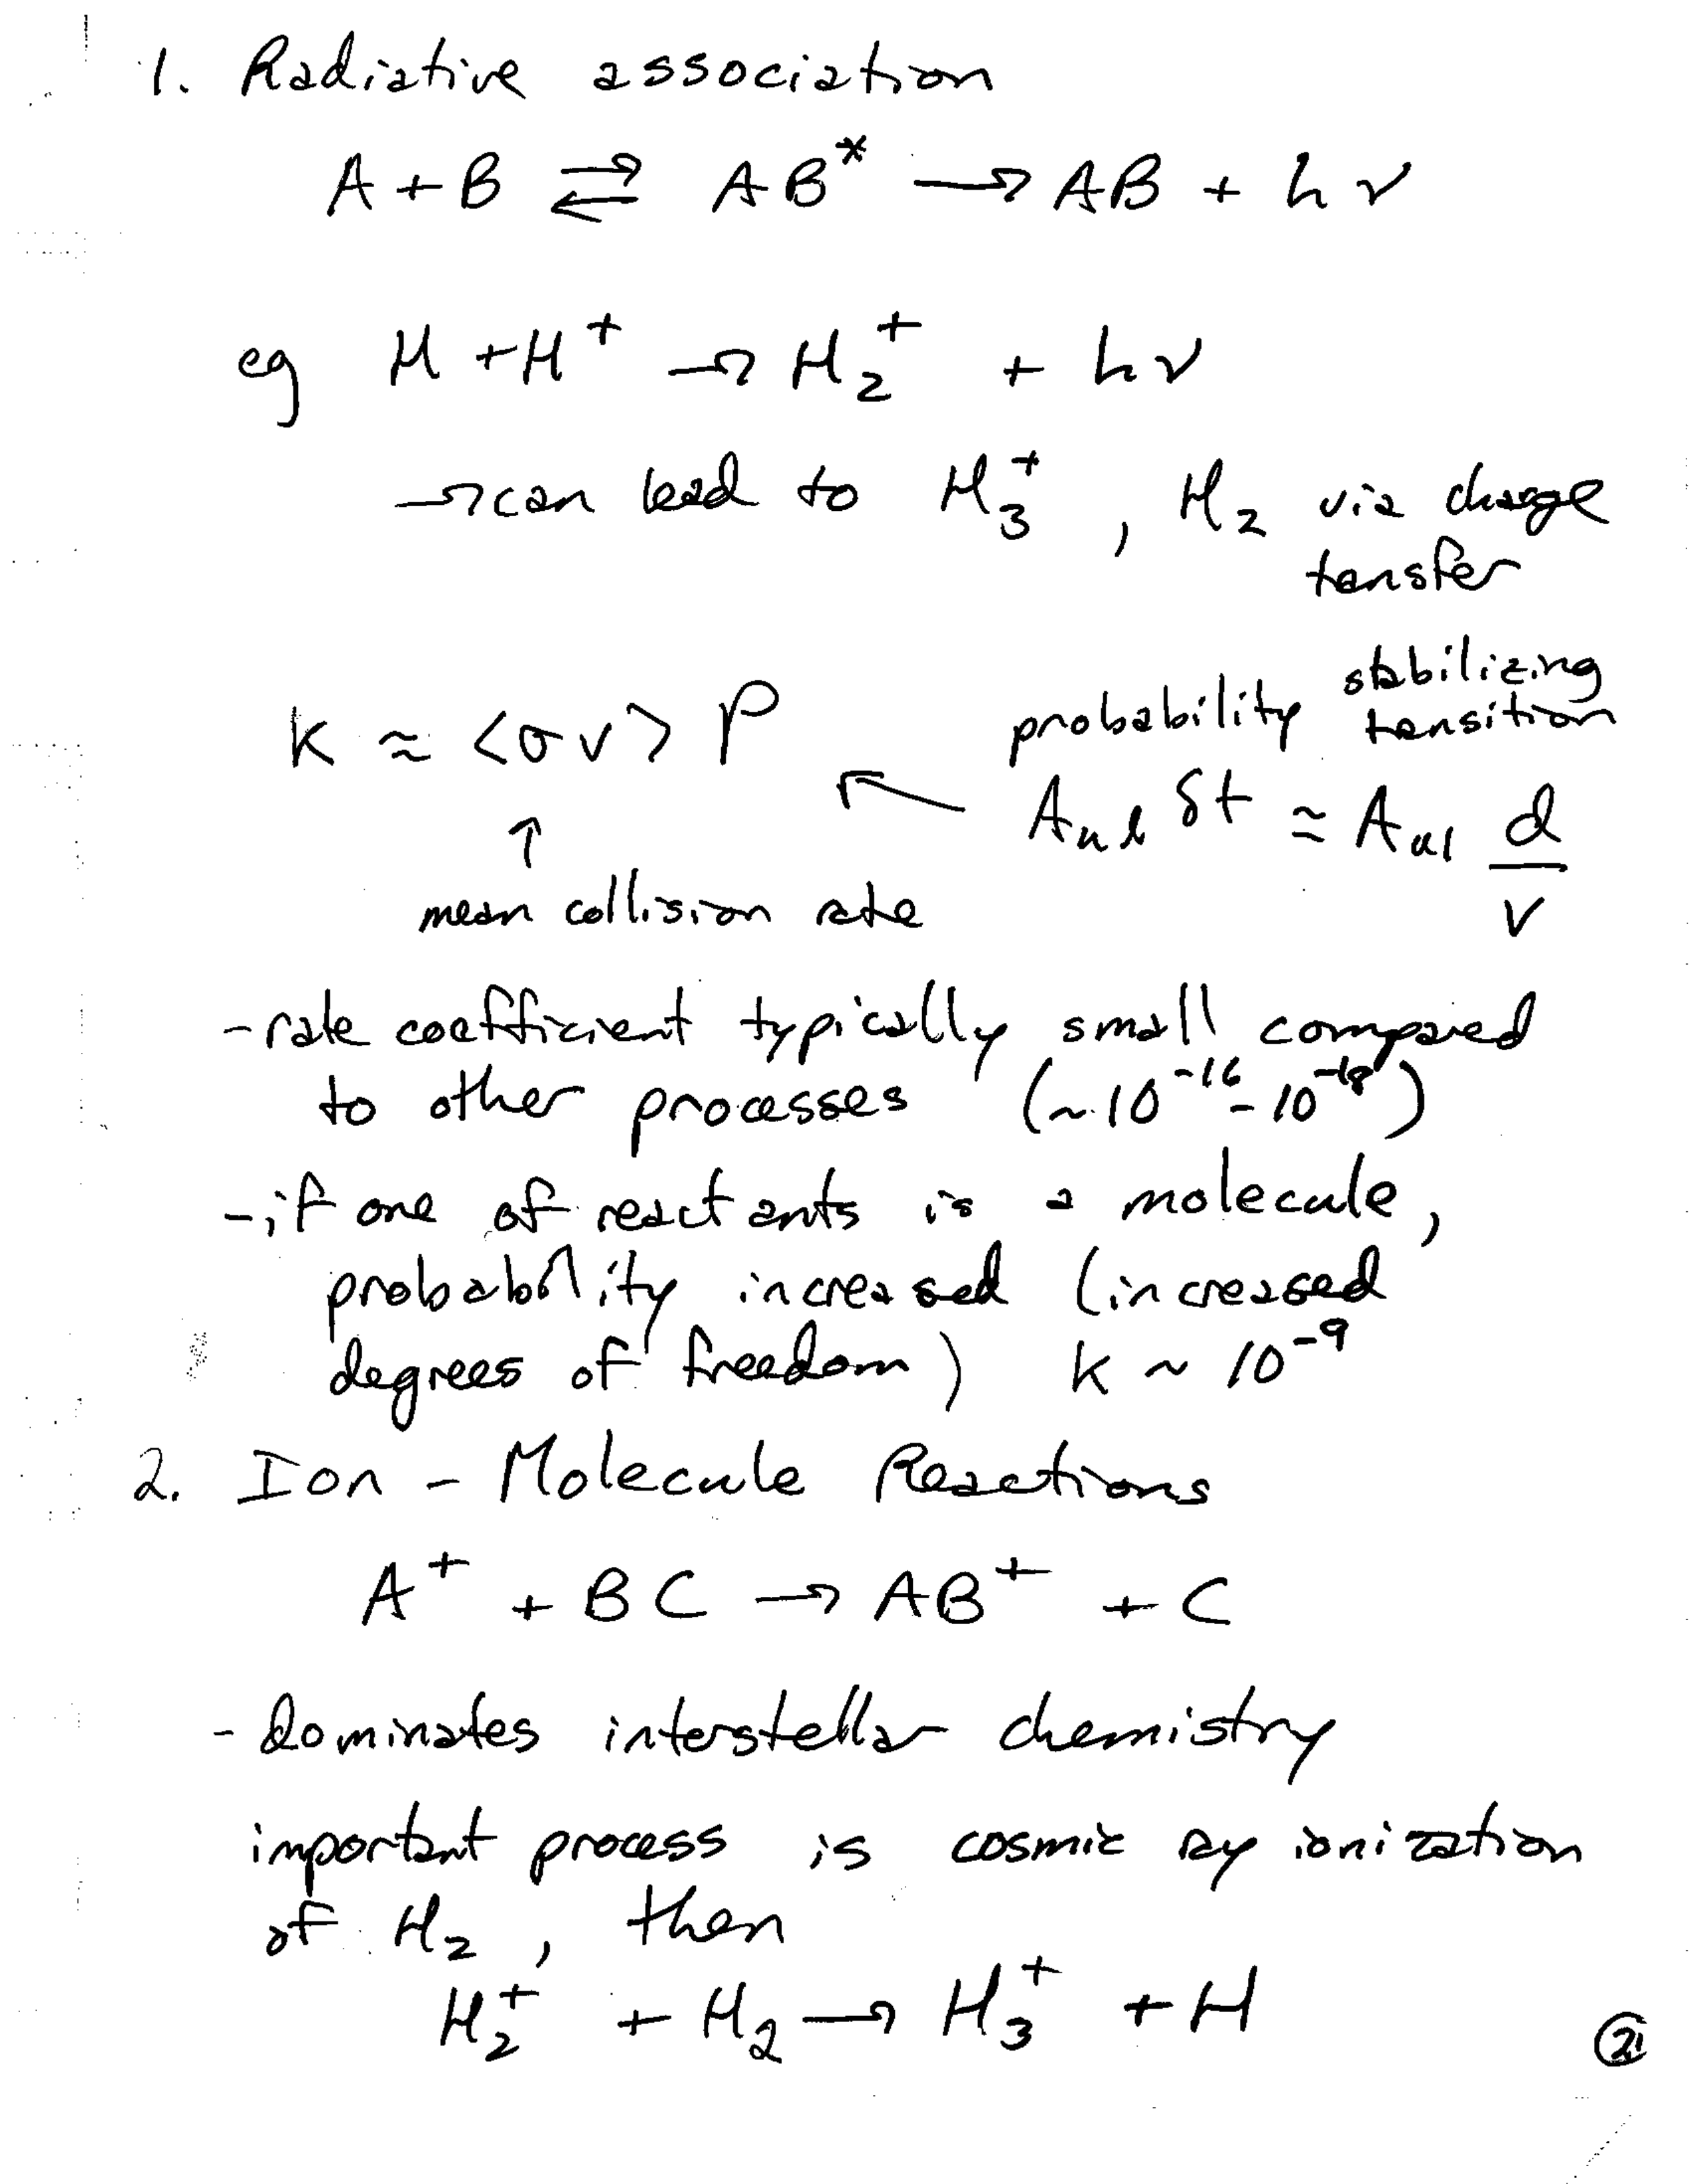 1. Radiative association
A + B ⇌ AB* → AB + hν
eg H + H⁺ → H₂⁺ + hν
→ can lead to H₃⁺, H₂ via charge
transfer
k ≈ <σv> P
probability stabilizing
transition
A_ul δt ≈ A_ul d/v
↑
mean collision rate
- rate coefficient typically small compared
to other processes (~10⁻¹⁶ - 10⁻¹⁸)
- if one of reactants is a molecule,
probability increased (increased
degrees of freedom) k ~ 10⁻⁹
2. Ion - Molecule Reactions
A⁺ + BC → AB⁺ + C
- dominates interstellar chemistry
important process is cosmic ray ionization
of H₂, then
H₂⁺ + H₂ → H₃⁺ + H
②